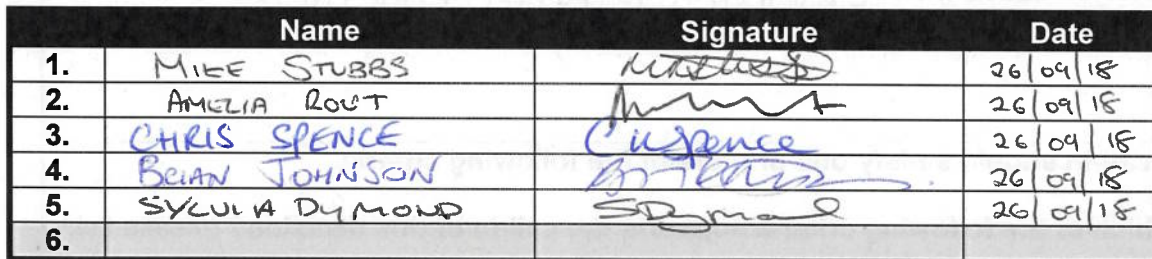 Name Signature Date
1. MIKE STUBBS 26/09/18
2. AMELIA ROUT 26/09/18
3. CHRIS SPENCE CuSpence 26/09/18
4. BRIAN JOHNSON 26/09/18
5. SYLVIA DYMOND SDymond 26/09/18
6.